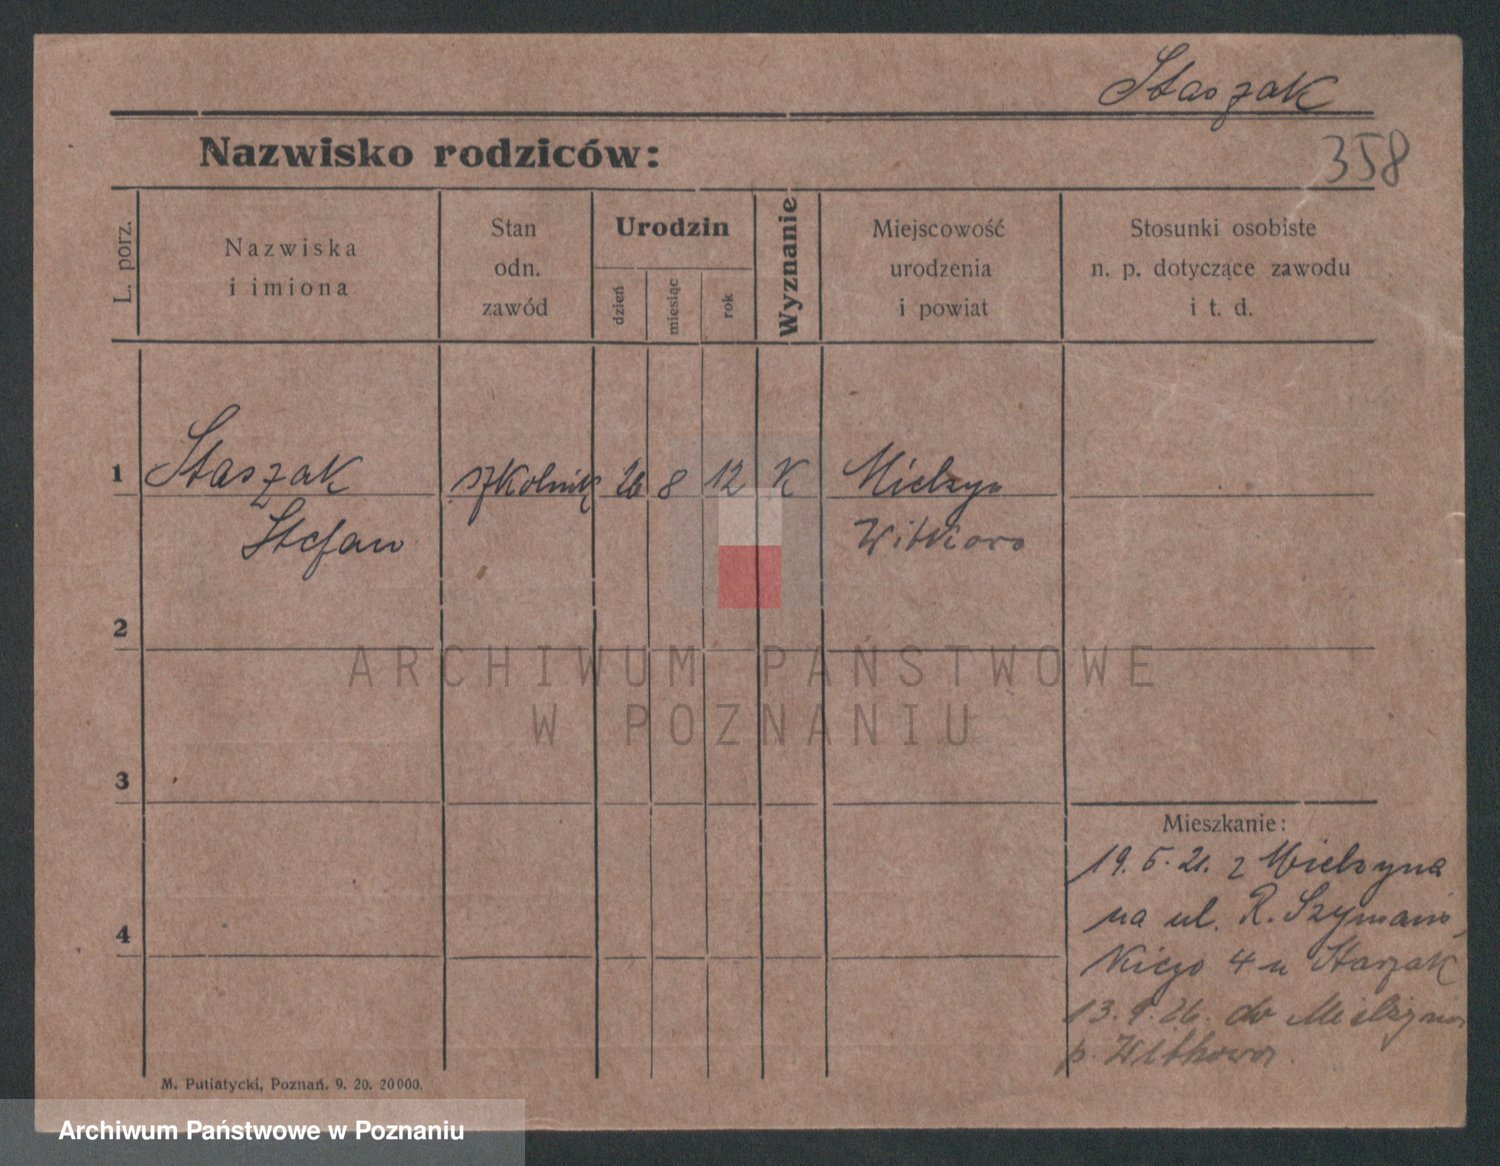 Staszak
Nazwisko rodziców:
358
L. porz.
Nazwiska
i imiona
Stan
odn.
zawód
Urodzin
dzień
miesiąc
rok
Wyznanie
Miejscowość
urodzenia
i powiat
Stosunki osobiste
n. p. dotyczące zawodu
i t. d.
1 Staszak szkolnik 26 8 12 K Mielżyn
Stefan Witkowo
2
ARCHIWUM PAŃSTWOWE
W POZNANIU
3
Mieszkanie:
19. 5. 21. z Mielżyna
na ul. R. Szymań
4
kiego 4 u Staszak
13. 9. 26. do Mielżyna
p. Witkowo.
M. Putiatycki, Poznań. 9. 20. 20000.
Archiwum Państwowe w Poznaniu